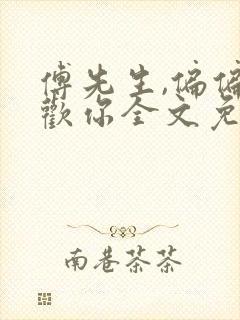 傅先生,偏偏
歡你全文免
南巷茶茶